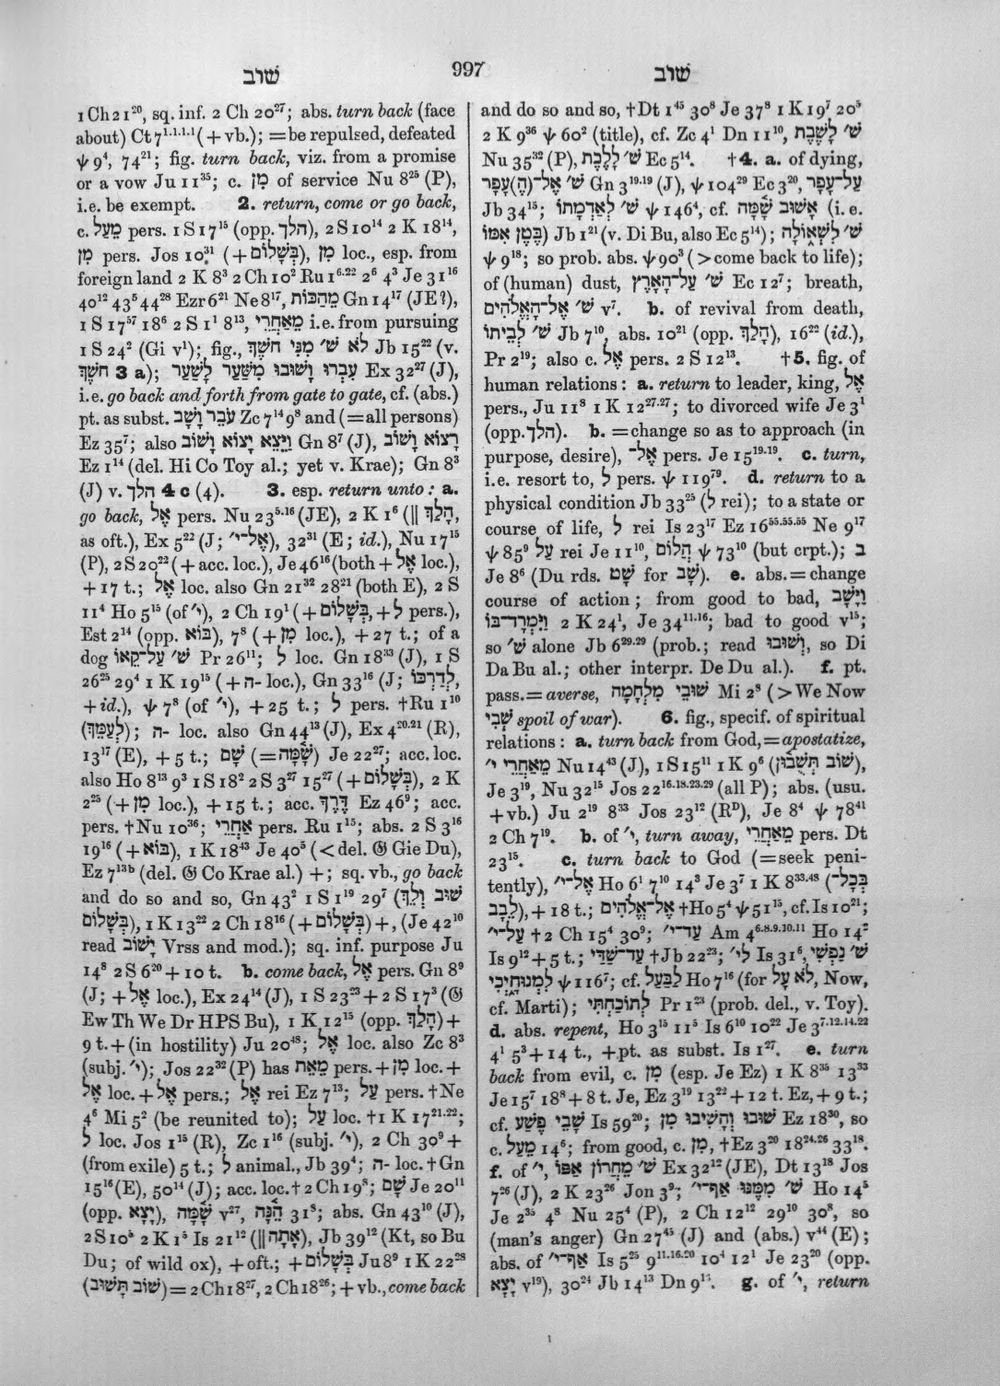 שׁוּב
997
שׁוּב
1 Ch 21²⁰, sq. inf. 2 Ch 20²⁷; abs. turn back (face
about) Ct 7¹·¹·¹·¹ (+ vb.); = be repulsed, defeated
ψ 9⁴, 74²¹; fig. turn back, viz. from a promise
or a vow Ju 11³⁵; c. מִן of service Nu 8²⁵ (P),
i.e. be exempt. 2. return, come or go back,
c. מֵעַל pers. 1 S 17¹⁵ (opp. הלך), 2 S 10¹⁴ 2 K 18¹⁴,
מִן pers. Jos 10²¹ (+ בְּשָׁלוֹם), מִן loc., esp. from
foreign land 2 K 8³ 2 Ch 10² Ru 1⁶·²² 2⁶ 4³ Je 31¹⁶
40¹² 43⁵ 44²⁸ Ezr 6²¹ Ne 8¹⁷, מֵהַכּוֹת Gn 14¹⁷ (JE?),
1 S 17⁵⁷ 18⁶ 2 S 1¹ 8¹³, מֵאַחֲרֵי i.e. from pursuing
1 S 24² (Gi v¹); fig., לֹא שׁ׳ מִנִּי חשֶׁךְ Jb 15²² (v.
חשֶׁךְ 3 a); עִבְרוּ וָשׁוּבוּ מִשַּׁעַר לָשַׁעַר Ex 32²⁷ (J),
i.e. go back and forth from gate to gate, cf. (abs.)
pt. as subst. עֹבֵר וָשָׁב Zc 7¹⁴ 9⁸ and (= all persons)
Ez 35⁷; also וַיֵּצֵא יָצוֹא וָשׁוֹב Gn 8⁷ (J), רָצוֹא וָשׁוֹב
Ez 1¹⁴ (del. Hi Co Toy al.; yet v. Krae); Gn 8³
(J) v. הלך 4 c (4). 3. esp. return unto: a.
go back, אֶל pers. Nu 23⁵·¹⁶ (JE), 2 K 1⁶ (‖ הָלַךְ,
as oft.), Ex 5²² (J; אֶל־י״), 32³¹ (E; id.), Nu 17¹⁵
(P), 2 S 20²² (+ acc. loc.), Je 46¹⁶ (both + אֶל loc.),
+ 17 t.; אֶל loc. also Gn 21³² 28²¹ (both E), 2 S
11⁴ Ho 5¹⁵ (of י״), 2 Ch 19¹ (+ בְּשָׁלוֹם, + לְ pers.),
Est 2¹⁴ (opp. בּוֹא), 7⁸ (+ מִן loc.), + 27 t.; of a
dog שׁ׳ עַל־קֵאוֹ Pr 26¹¹; לְ loc. Gn 18³³ (J), 1 S
26²⁵ 29⁴ 1 K 19¹⁵ (+ ה- loc.), Gn 33¹⁶ (J; לְדַרְכּוֹ,
+ id.), ψ 7⁸ (of י״), + 25 t.; לְ pers. †Ru 1¹⁰
(לְעַמֵּךְ); ה- loc. also Gn 44¹³ (J), Ex 4²⁰·²¹ (R),
13¹⁷ (E), + 5 t.; שָׁם (= שָׁמָּה) Je 22²⁷; acc. loc.
also Ho 8¹³ 9³ 1 S 18² 2 S 3²⁷ 15²⁷ (+ בְּשָׁלוֹם), 2 K
2²⁵ (+ מִן loc.), + 15 t.; acc. דֶּרֶךְ Ez 46⁹; acc.
pers. †Nu 10³⁶; אַחֲרֵי pers. Ru 1¹⁵; abs. 2 S 3¹⁶
19¹⁶ (+ בּוֹא), 1 K 18⁴³ Je 40⁵ (< del. 𝔊 Gie Du),
Ez 7¹³ᵇ (del. 𝔊 Co Krae al.) +; sq. vb., go back
and do so and so, Gn 43² 1 S 1¹⁹ 29⁷ (שׁוּב וְלֵךְ
בְּשָׁלוֹם), 1 K 13²² 2 Ch 18¹⁶ (+ בְּשָׁלוֹם) +, (Je 42¹⁰
read יָשׁוֹב Vrss and mod.); sq. inf. purpose Ju
14⁸ 2 S 6²⁰ + 10 t. b. come back, אֶל pers. Gn 8⁹
(J; + אֶל loc.), Ex 24¹⁴ (J), 1 S 23²³ + 2 S 17³ (𝔊
Ew Th We Dr HPS Bu), 1 K 12¹⁵ (opp. הָלַךְ) +
9 t. + (in hostility) Ju 20⁴⁸; אֶל loc. also Zc 8³
(subj. י״); Jos 22³² (P) has מֵאֵת pers. + מִן loc. +
אֶל loc. + אֶל pers.; אֶל rei Ez 7¹³; עַל pers. †Ne
4⁶ Mi 5² (be reunited to); עַל loc. †1 K 17²¹·²²;
לְ loc. Jos 1¹⁵ (R), Zc 1¹⁶ (subj. י״), 2 Ch 30⁹ +
(from exile) 5 t.; לְ animal., Jb 39⁴; ה- loc. †Gn
15¹⁶ (E), 50¹⁴ (J); acc. loc. † 2 Ch 19⁸; שָׁם Je 20¹¹
(opp. יָצָא), שָׁמָּה v²⁷, הֵנָּה 31⁸; abs. Gn 43¹⁰ (J),
2 S 10⁵ 2 K 1⁵ Is 21¹² (‖ אָתָה), Jb 39¹² (Kt, so Bu
Du; of wild ox), + oft.; + בְּשָׁלוֹם Ju 8⁹ 1 K 22²⁸
(שׁוֹב תָּשׁוּב) = 2 Ch 18²⁷, 2 Ch 18²⁶; + vb., come back
and do so and so, †Dt 1⁴⁵ 30⁸ Je 37⁸ 1 K 19⁷ 20⁵
2 K 9³⁶ ψ 60² (title), cf. Zc 4¹ Dn 11¹⁰, שׁ׳ לָשֶׁבֶת
Nu 35³² (P), שׁ׳ לָלֶכֶת Ec 5¹⁴. †4. a. of dying,
שׁ׳ אֶל־(הָ)עָפָר Gn 3¹⁹·¹⁹ (J), ψ 104²⁹ Ec 3²⁰, עַל־עָפָר
Jb 34¹⁵; שׁ׳ לְאַדְמָתוֹ ψ 146⁴, cf. אָשׁוּב שָׁמָּה (i.e.
בֶּטֶן אִמּוֹ) Jb 1²¹ (v. Di Bu, also Ec 5¹⁴); שׁ׳ לִשְׁאוֹלָה
ψ 9¹⁸; so prob. abs. ψ 90³ (> come back to life);
of (human) dust, שׁ׳ עַל־הָאָרֶץ Ec 12⁷; breath,
שׁ׳ אֶל־הָאֱלֹהִים v⁷. b. of revival from death,
שׁ׳ לְבֵיתוֹ Jb 7¹⁰, abs. 10²¹ (opp. הָלַךְ), 16²² (id.),
Pr 2¹⁹; also c. אֶל pers. 2 S 12¹³. †5. fig. of
human relations: a. return to leader, king, אֶל
pers., Ju 11⁸ 1 K 12²⁷·²⁷; to divorced wife Je 3¹
(opp. הלך). b. = change so as to approach (in
purpose, desire), אֶל־ pers. Je 15¹⁹·¹⁹. c. turn,
i.e. resort to, לְ pers. ψ 119⁷⁹. d. return to a
physical condition Jb 33²⁵ (לְ rei); to a state or
course of life, לְ rei Is 23¹⁷ Ez 16⁵⁵·⁵⁵·⁵⁵ Ne 9¹⁷
ψ 85⁹ עַל rei Je 11¹⁰, הֲלוֹם ψ 73¹⁰ (but crpt.); בְּ
Je 8⁶ (Du rds. שָׁט for שָׁב). e. abs. = change
course of action; from good to bad, וַיָּשָׁב
וַיִּמְרָד־בּוֹ 2 K 24¹, Je 34¹¹·¹⁶; bad to good v¹⁵;
so שׁ׳ alone Jb 6²⁹·²⁹ (prob.; read וְשׁוּבוּ, so Di
Da Bu al.; other interpr. De Du al.). f. pt.
pass. = averse, שׁוּבֵי מִלְחָמָה Mi 2⁸ (> We Now
שְׁבִי spoil of war). 6. fig., specif. of spiritual
relations: a. turn back from God, = apostatize,
מֵאַחֲרֵי י״ Nu 14⁴³ (J), 1 S 15¹¹ 1 K 9⁶ (שׁוֹב תְּשֻׁבוּן),
Je 3¹⁹, Nu 32¹⁵ Jos 22¹⁶·¹⁸·²³·²⁹ (all P); abs. (usu.
+ vb.) Ju 2¹⁹ 8³³ Jos 23¹² (Rᴰ), Je 8⁴ ψ 78⁴¹
2 Ch 7¹⁹. b. of י״, turn away, מֵאַחֲרֵי pers. Dt
23¹⁵. c. turn back to God (= seek peni-
tently), אֶל־י״ Ho 6¹ 7¹⁰ 14³ Je 3⁷ 1 K 8³³·⁴⁸ (בְּכָל־
לֵבָב), + 18 t.; אֶל־אֱלֹהִים †Ho 5⁴ ψ 51¹⁵, cf. Is 10²¹;
עַל־י״ † 2 Ch 15⁴ 30⁹; עַד־י״ Am 4⁶·⁸·⁹·¹⁰·¹¹ Ho 14²
Is 9¹² + 5 t.; עַד־שַׁדַּי †Jb 22²³; לי״ Is 31⁶, שׁ׳ נַפְשִׁי
לִמְנוּחָיְכִי ψ 116⁷; cf. לַבַּעַל Ho 7¹⁶ (for לֹא עָל, Now,
cf. Marti); לְתוֹכַחְתִּי Pr 1²³ (prob. del., v. Toy).
d. abs. repent, Ho 3¹⁵ 11⁵ Is 6¹⁰ 10²² Je 3⁷·¹²·¹⁴·²²
4¹ 5³ + 14 t., + pt. as subst. Is 1²⁷. e. turn
back from evil, c. מִן (esp. Je Ez) 1 K 8³⁵ 13³³
Je 15⁷ 18⁸ + 8 t. Je, Ez 3¹⁹ 13²² + 12 t. Ez, + 9 t.;
cf. שָׁבֵי פֶשַׁע Is 59²⁰; שׁוּבוּ וְהָשִׁיבוּ מִן Ez 18³⁰, so
c. מֵעַל 14⁶; from good, c. מִן, †Ez 3²⁰ 18²⁴·²⁶ 33¹⁸.
f. of י״, שׁ׳ מֵחֲרוֹן אַפּוֹ Ex 32¹² (JE), Dt 13¹⁸ Jos
7²⁶ (J), 2 K 23²⁶ Jon 3⁹; שׁ׳ מִמֶּנּוּ אַף־י״ Ho 14⁵
Je 2³⁵ 4⁸ Nu 25⁴ (P), 2 Ch 12¹² 29¹⁰ 30⁸, so
(man's anger) Gn 27⁴⁵ (J) and (abs.) v⁴⁴ (E);
abs. of אַף־י״ Is 5²⁵ 9¹¹·¹⁶·²⁰ 10⁴ 12¹ Je 23²⁰ (opp.
יָצָא v¹⁹), 30²⁴ Jb 14¹³ Dn 9¹⁶. g. of י״, return